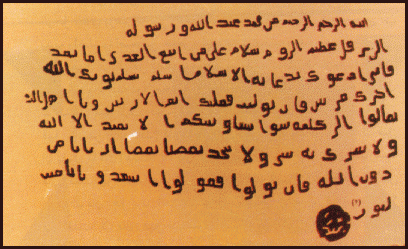 بسم الله الرحمن الرحيم من محمد عبد الله ورسوله
الى هرقل عظيم الروم سلام على من اتبع الهدى اما بعد
فانى ادعوك بدعاية الاسلام اسلم تسلم يوتك الله
اجرك مرتين فان توليت فعليك اثم الاريسين ويا اهل
تعالوا الى كلمة سوا بيننا وبينكم الا نعبد الا الله
ولا نشرك به شيا ولا يتخذ بعضنا بعضا اربابا من
دون الله فان تولوا فقولوا اشهدو بانا مس
لمون